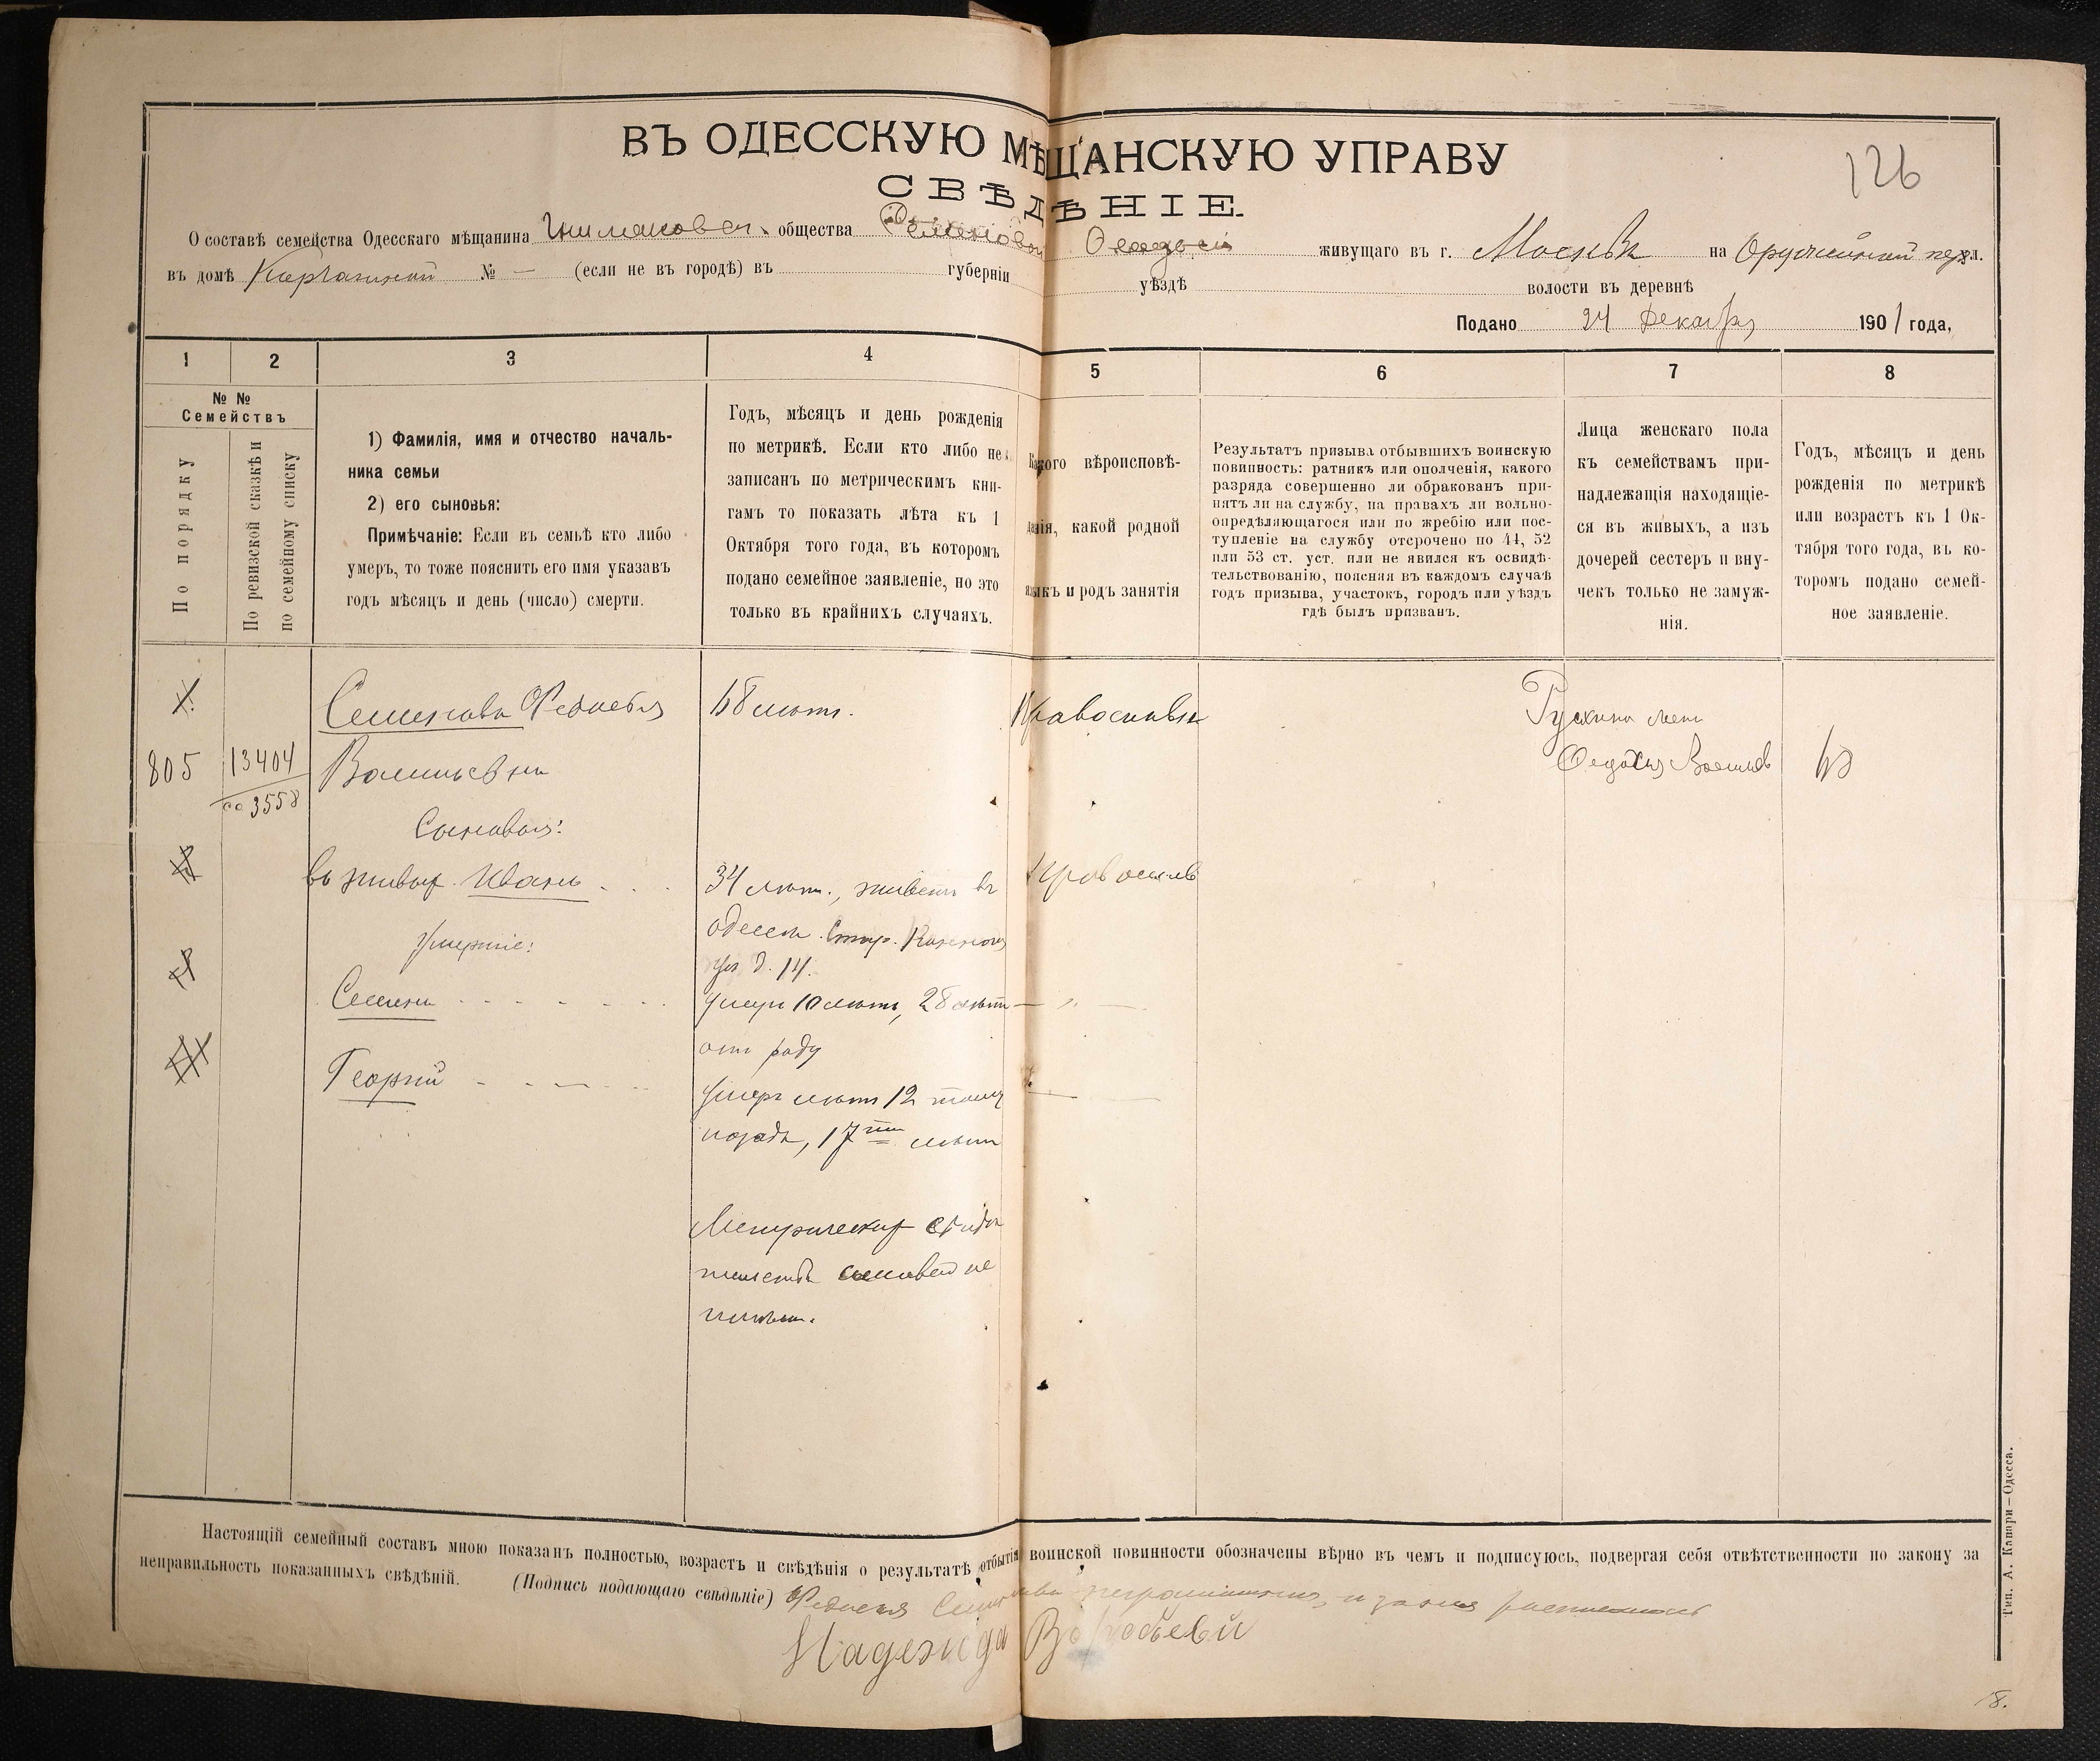 ВЪ ОДЕССКУЮ МѢЩАНСКУЮ УПРАВУ
126
СВѢДѢНІЕ.
О составѣ семейства Одесскаго мѣщанина общества Семеновой живущаго въ г. Москвѣ на Оружейной пер. ул.
въ домѣ № — (если не въ городѣ) въ губерніи уѣздѣ волости въ деревнѣ
Подано 24 Декабря 1901 года,
1 2 3 4 5 6 7 8
№ №
Семействъ
По порядку
По ревизской сказкѣ и
по семейному списку
1) Фамилія, имя и отчество началь-
ника семьи
2) его сыновья:
Примѣчаніе: Если въ семьѣ кто либо
умеръ, то тоже пояснить его имя указавъ
годъ мѣсяцъ и день (число) смерти.
Годъ, мѣсяцъ и день рожденія
по метрикѣ. Если кто либо не
записанъ по метрическимъ кни-
гамъ то показать лѣта къ 1
Октября того года, въ которомъ
подано семейное заявленіе, но это
только въ крайнихъ случаяхъ.
Какого вѣроисповѣ-
данія, какой родной
языкъ и родъ занятія
Результатъ призыва отбывшихъ воинскую
повинность: ратникъ или ополченія, какого
разряда совершенно ли обракованъ при-
нятъ ли на службу, на правахъ ли вольно-
опредѣляющагося или по жребію или пос-
тупленіе на службу отсрочено по 44, 52
или 53 ст. уст. или не явился къ освидѣ-
тельствованію, поясняя въ каждомъ случаѣ
годъ призыва, участокъ, городъ или уѣздъ
гдѣ былъ призванъ.
Лица женскаго пола
къ семействамъ при-
надлежащія находящіе-
ся въ живыхъ, а изъ
дочерей сестеръ и вну-
чекъ только не замуж-
нія.
Годъ, мѣсяцъ и день
рожденія по метрикѣ
или возрастъ къ 1 Ок-
тября того года, въ ко-
торомъ подано семей-
ное заявленіе.
Семенова Федосья 68 лѣтъ. Православн
805 13404 Васильевна
3558
Сыновья:
въ живыхъ Иванъ . . . 34 лѣтъ, живетъ въ Православ
Одессѣ
ул д. 14.
Умершіе:
Семенъ - - - - - умеръ 10 лѣтъ, 28 лѣтъ — " —
отъ роду
Георгій - - — умеръ лѣтъ 12 тому
назадъ, 17ти лѣтъ
Метрическихъ свидѣ
тельствъ сыновей не
имѣю.
Настоящій семейный составъ мною показанъ полностью, возрастъ и свѣдѣнія о результатѣ отбытія воинской повинности обозначены вѣрно въ чемъ и подписуюсь, подвергая себя отвѣтственности по закону за
неправильность показанныхъ свѣдѣній. (Подпись подающаго свѣдѣніе) Федосья Семенова неграмотная, и за нея
Надежда Воробьевой
Тип. А. Капари — Одесса.